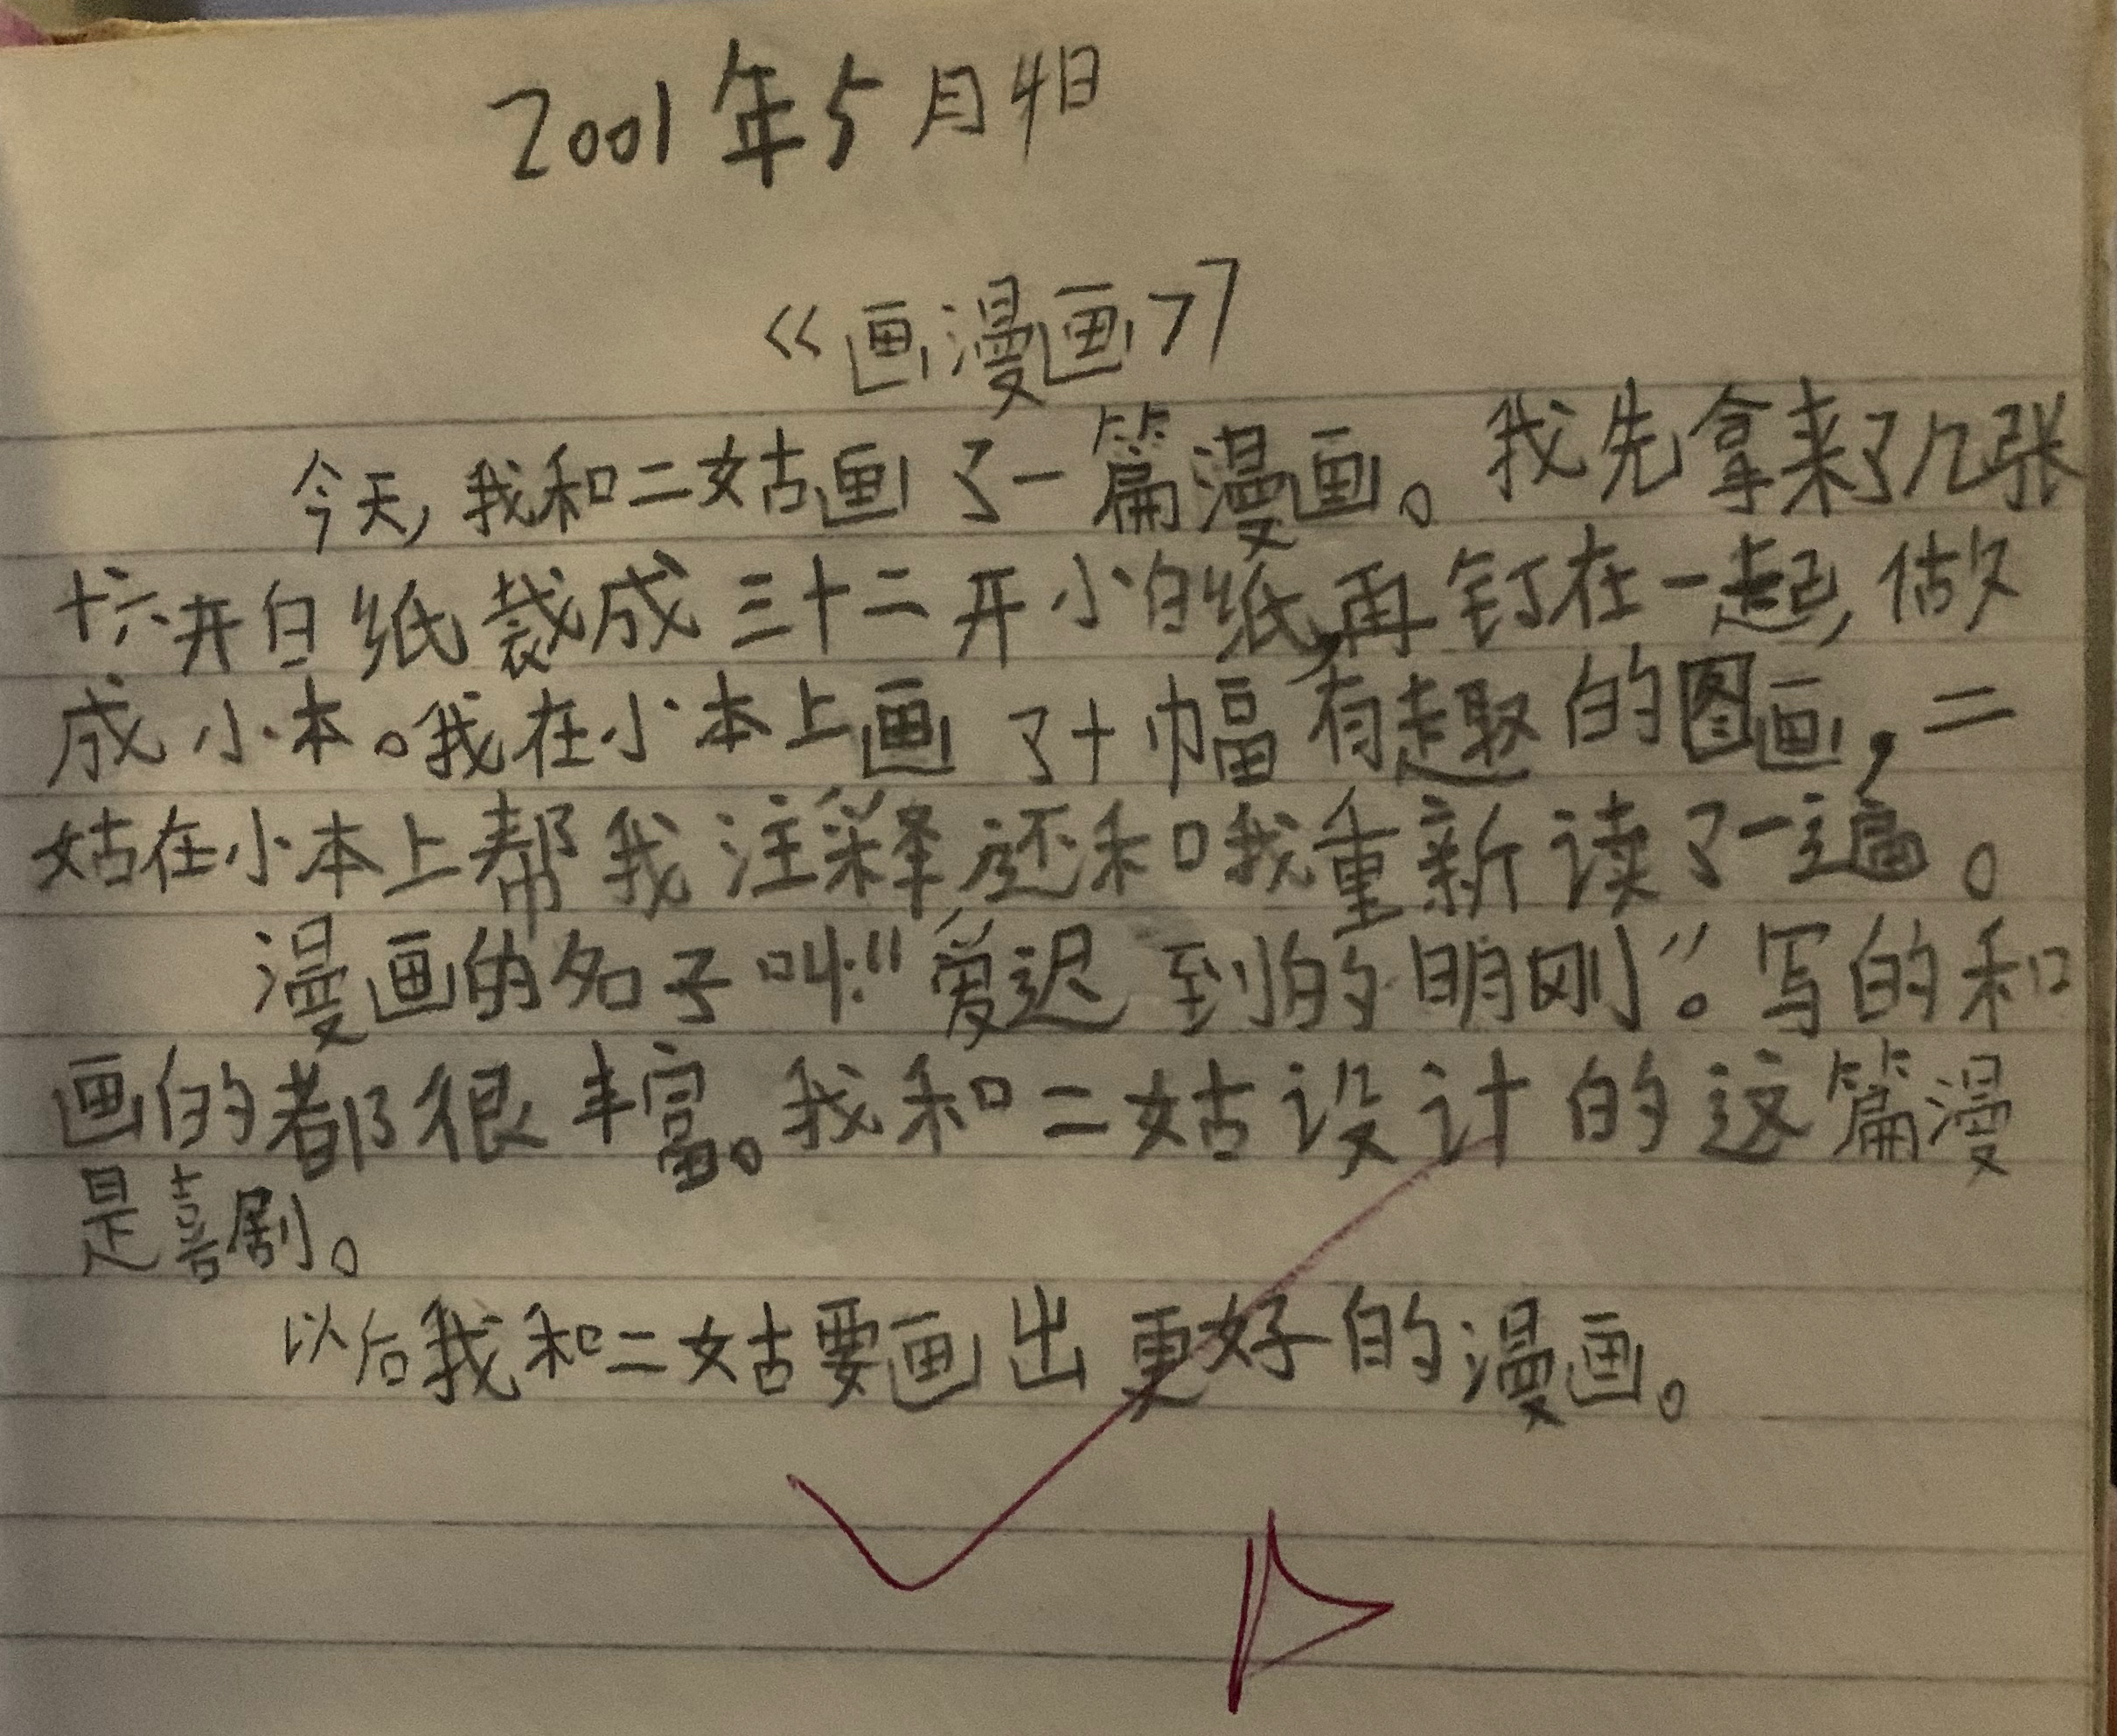 2001年5月4日
《画漫画》
今天,我和二姑画了一篇漫画。我先拿来了几张
十六开白纸裁成三十二开小白纸,再钉在一起,做
成小本。我在小本上画了十幅有趣的图画,二
姑在小本上帮我注释还和我重新读了一遍。
漫画的名子叫:“爱迟到的明刚”。写的和
画的都很丰富。我和二姑设计的这篇漫
是喜剧。
以后我和二姑要画出更好的漫画。